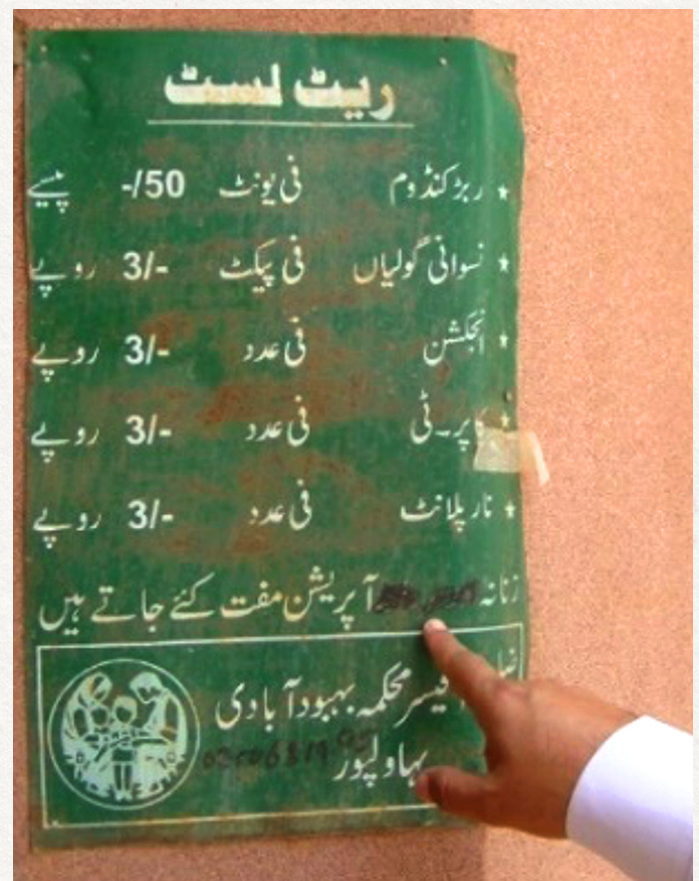 ریٹ لسٹ
٭ ربڑ کنڈوم فی یونٹ 50/- پیسے
٭ نسوانی گولیاں فی پیکٹ 3/- روپے
٭ انجکشن فی عدد 3/- روپے
٭ کاپر۔ٹی فی عدد 3/- روپے
٭ نار پلانٹ فی عدد 3/- روپے
زنانہ آپریشن مفت کئے جاتے ہیں
محکمہ بہبود آبادی
بہاولپور